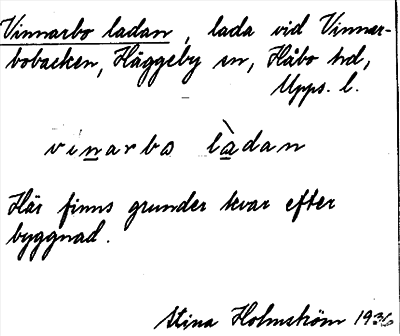 Vinnarbo ladan, lada vid Vinnar-
bobacken, Häggeby sn, Håbo hd,
Upps. l.
vinarbo làdan
Här finns grunder kvar efter
byggnad.
Stina Holmström 1936